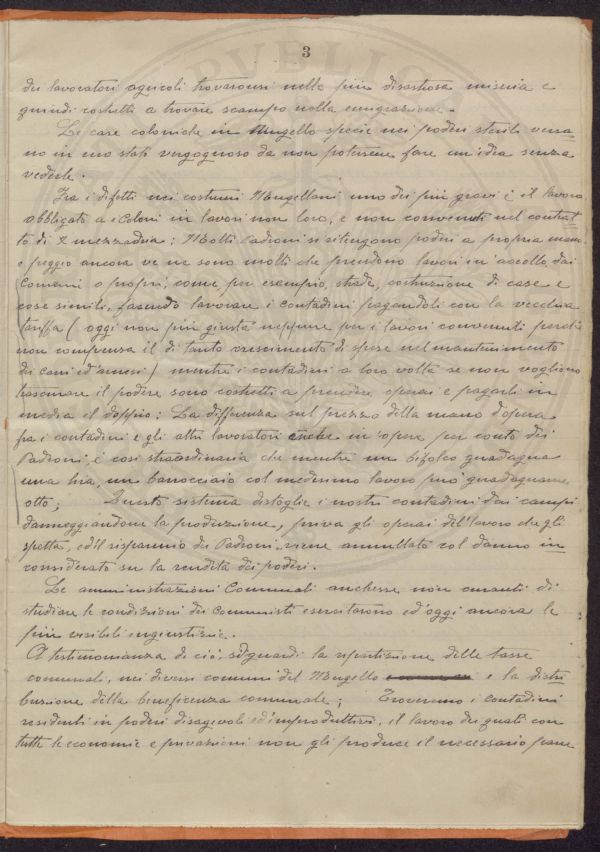 3
dei lavoratori agricoli trovaronsi nella più disastrosa miseria e
quindi costretti a trovare scampo nella emigrazione.
Le case coloniche in Mugello specie nei poderi sterili versa-
no in uno stato vergognoso da non potersene fare un'idea senza
vederle.
Fra i difetti nei costumi Mugellani uno dei più gravi è il lavoro
obbligato ai Coloni in lavori non loro, e non convenuti nel contrat-
to di mezzadria: Molti Padroni si ritengono poderi a propria mano
e peggio ancora ve ne sono molti che prendono lavori in accollo dai
Comuni o propri, come per esempio, strade, costruzione di case e
cose simili, facendo lavorare i contadini pagandoli con la vecchia
tariffa (oggi non più giusta neppure per i lavori convenuti perchè
non compensa il di tanto cresciuto di spese nel mantenimento
dei cani ed arnesi) mentre i contadini a loro volta se non vogliono
trascurare il podere sono costretti a prendere operai e pagarli in
media il doppio: La differenza sul prezzo della mano d'opera
fra i contadini e gli altri lavoratori anche in opere per conto dei
Padroni, è così straordinaria che mentre un bifolco guadagna
una lira, un barrocciaio col medesimo lavoro può guadagnarne
otto; Questo sistema distoglie i nostri contadini dai campi
danneggiandone la produzione, priva gli operai del lavoro che gli
spetta, ed il risparmio dei Padroni viene annullato col danno in-
considerato su la rendita dei poderi.
Le amministrazioni Comunali anchesse non curanti di
studiare le condizioni dei Comunisti esercitarono ed oggi ancora le
più visibili ingiustizie.
A testimonianza di ciò, si guardi la ripartizione delle tasse
comunali, nei diversi comuni del Mugello e la distri-
buzione della beneficenza comunale; Troveremo i contadini
residenti in poderi disagevoli ed improduttivi, il lavoro dei quali con
tutte le economie e privazioni non gli produce il necessario pane